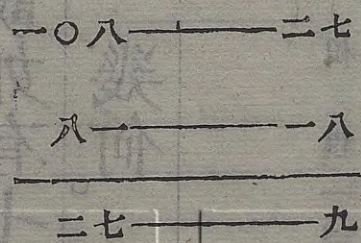 一〇八——二七
八一——一八
二七——九